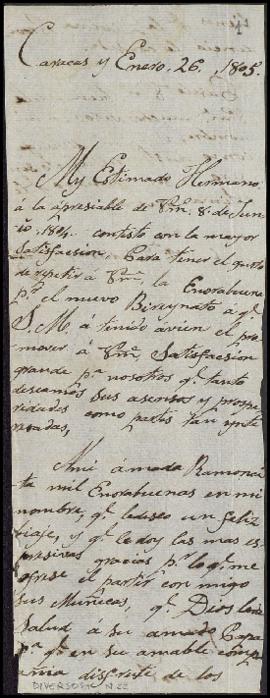 Caracas y Enero. 26. 1805.
My Estimado Hermano
á la apresiable de Vm. 8. de Jun
io. 1804. contesto con la mayor
Satisfacsion, para tener el gusto
de repetir á Vm. la Enorabuena
pr. el nuevo Birreynato á qe.
S. M. á tenido avien el pro
mover á Vm. Satisfacsion
grande pa. nosotros qe. tanto
deseamos sus asensos y prospe
ridades como partes tan ynte
resadas,
Ami ámada Ramonci
ta mil Enorabuenas en mi
nombre, qe. le deseo un feliz
biaje, y qe. le doy las mas es
presivas gracias pr. lo qe. me
ofrese el partir con migo
sus Muñecas, qe. Dios le dé
salud á su amado Papa
pa. qe. en su amable comp
añia disfrute de los
DIVERSOS